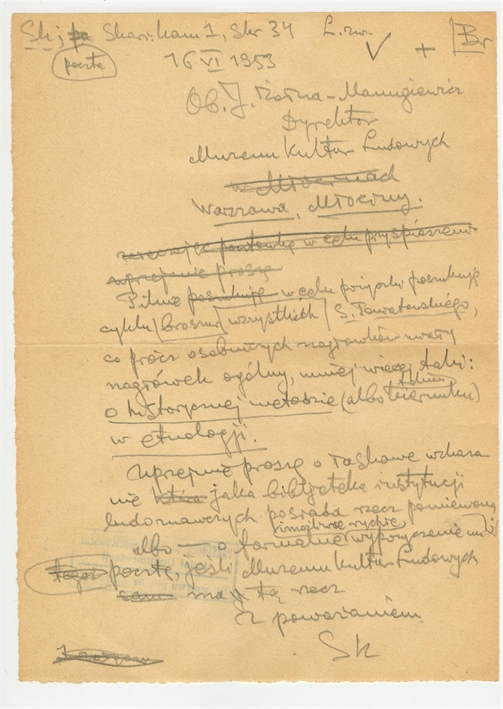 Skarikam 1, Skr 34 L.zw. Br
poczta 16 VI 1953
Ob. J. Żołna-Manugiewicz
Dyrektor
Muzeum Kultur Ludowych
w Młocinach
Warszawa, Młociny.
w celu przyspieszenia
uprzejmie proszę
Pilnie poszukuję w celu pożyczki poszukuję
cyklu broszur wszystkich S. Poniatowskiego,
co prócz osobnych nagłówków miały
nagłówek ogólny, mniej więcej taki:
o historycznej metodzie (albo kierunku)
w etnologji.
Uprzejmie proszę o łaskawe wskaza-
nie która jaka bibljoteka instytucji
ludoznawczych posiada rzecz pomienioną
możliwie rychłe
albo – o formalne wypożyczenie mi
pocztą, jeśli Muzeum Kultur Ludowych
samo ma tę rzecz
Z poważaniem
Sk